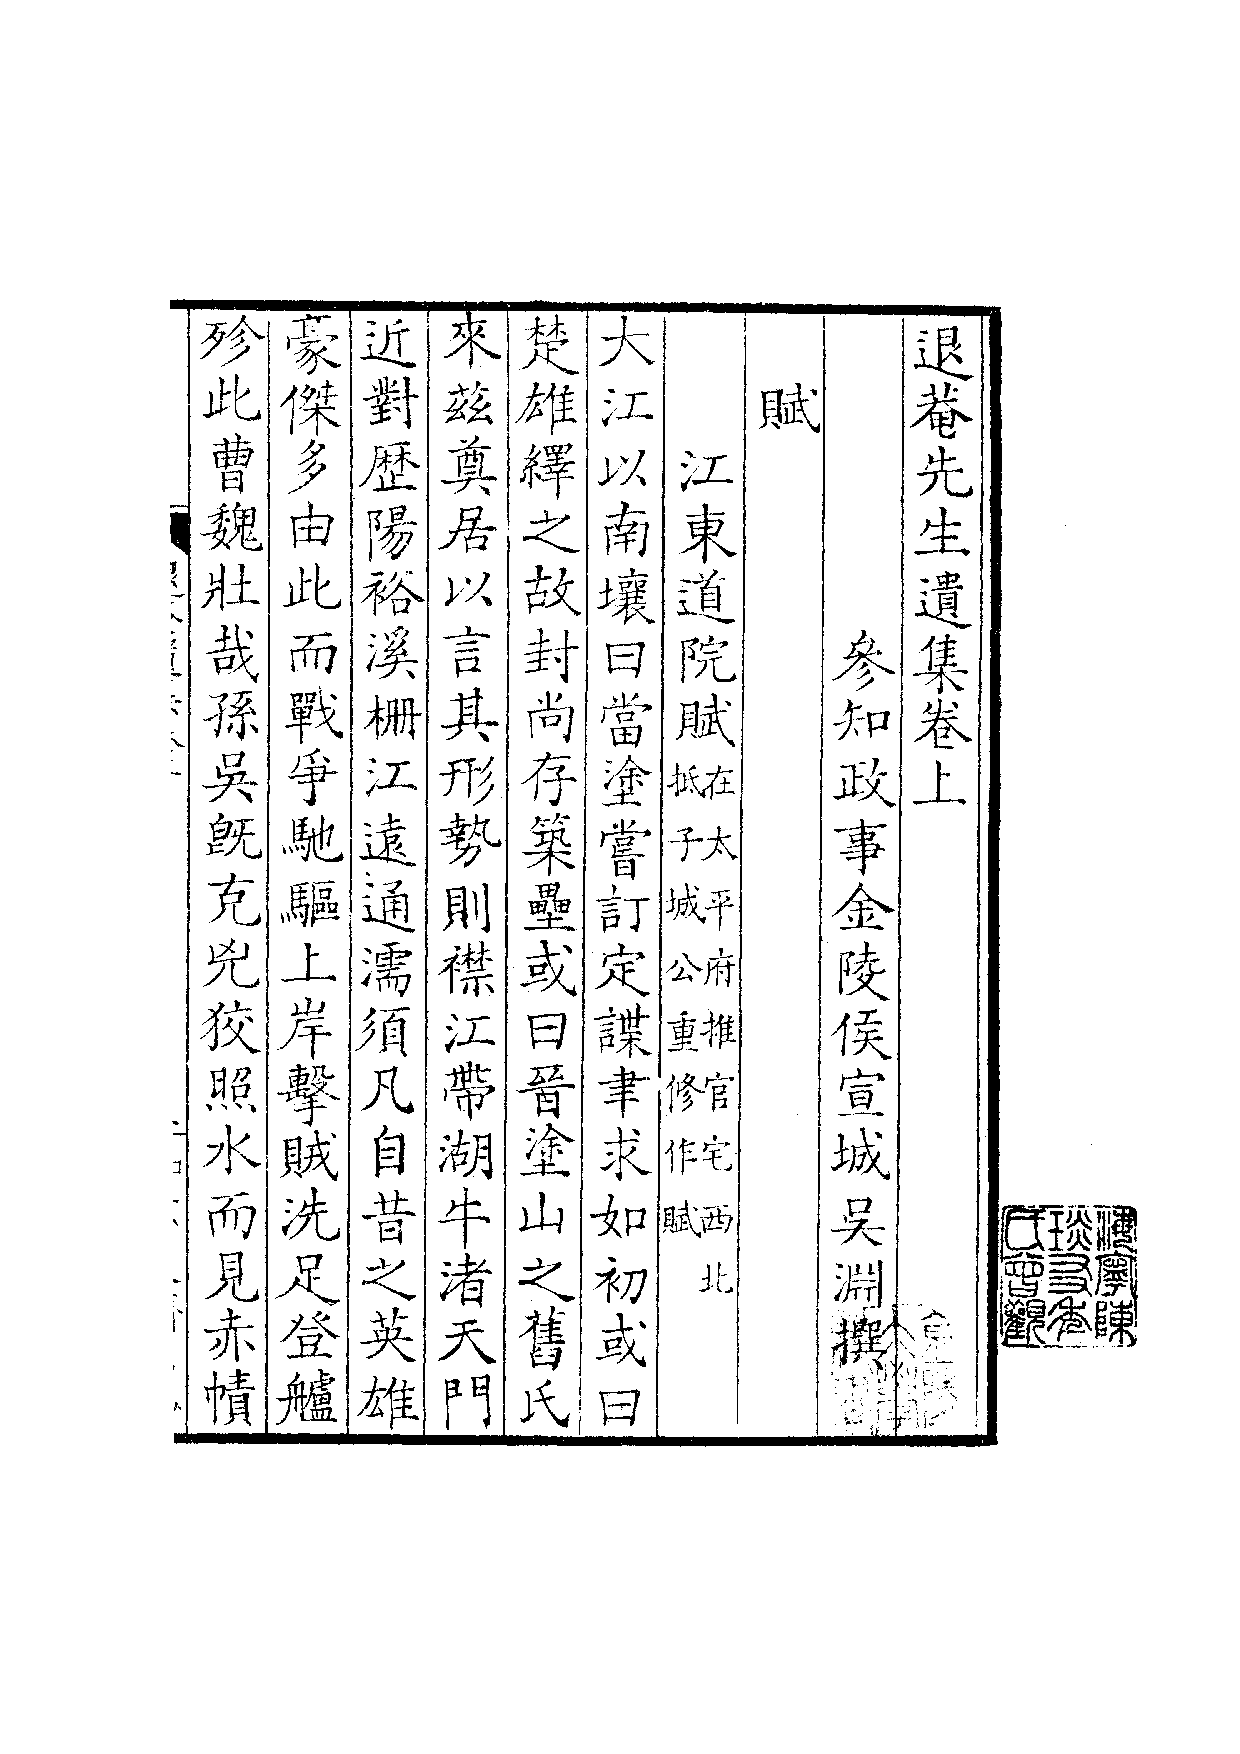 退菴先生遺集卷上
參知政事金陵侯宣城吳淵撰
賦
江東道院賦在太平府推官宅西北
抵子城公重修作賦
大江以南壤曰當塗嘗訂定諜聿求如初或曰
楚雄繹之故封尚存築壘或曰晉塗山之舊氏
來茲奠居以言其形勢則襟江帶湖牛渚天門
近對歷陽裕溪柵江遠通濡須凡自昔之英雄
豪傑多由此而戰爭馳驅上岸擊賊洗足登艫
殄此曹魏壯哉孫吳既克兇狡照水而見赤幘
海寧陳
琰友年
氏曾觀